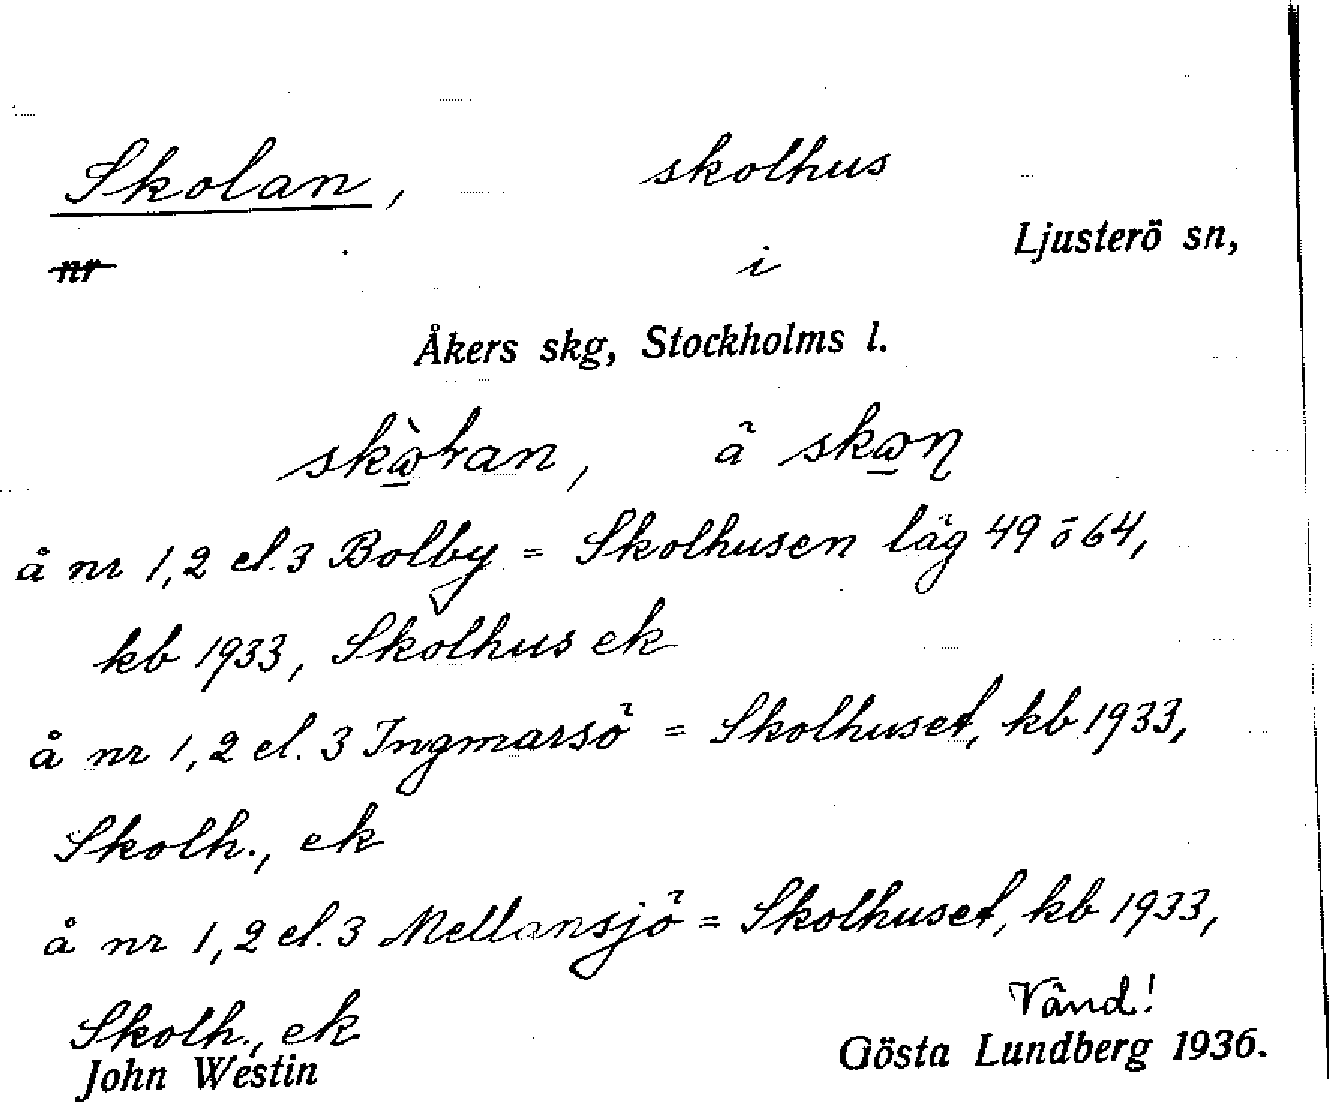 Skolan, skolhus
Ljusterö sn,
nr i
Åkers skg, Stockholms l.
å nr 1,2 el. 3 Bolby = Skolhusen läg 49 ö 64,
kb 1933, Skolhus ek
å nr 1,2 el. 3 Ingmarsö = Skolhuset, kb 1933,
Skolh., ek
å nr 1,2 el. 3 Mellansjö = Skolhuset, kb 1933,
Skolh., ek
Vänd!
John Westin Gösta Lundberg 1936.